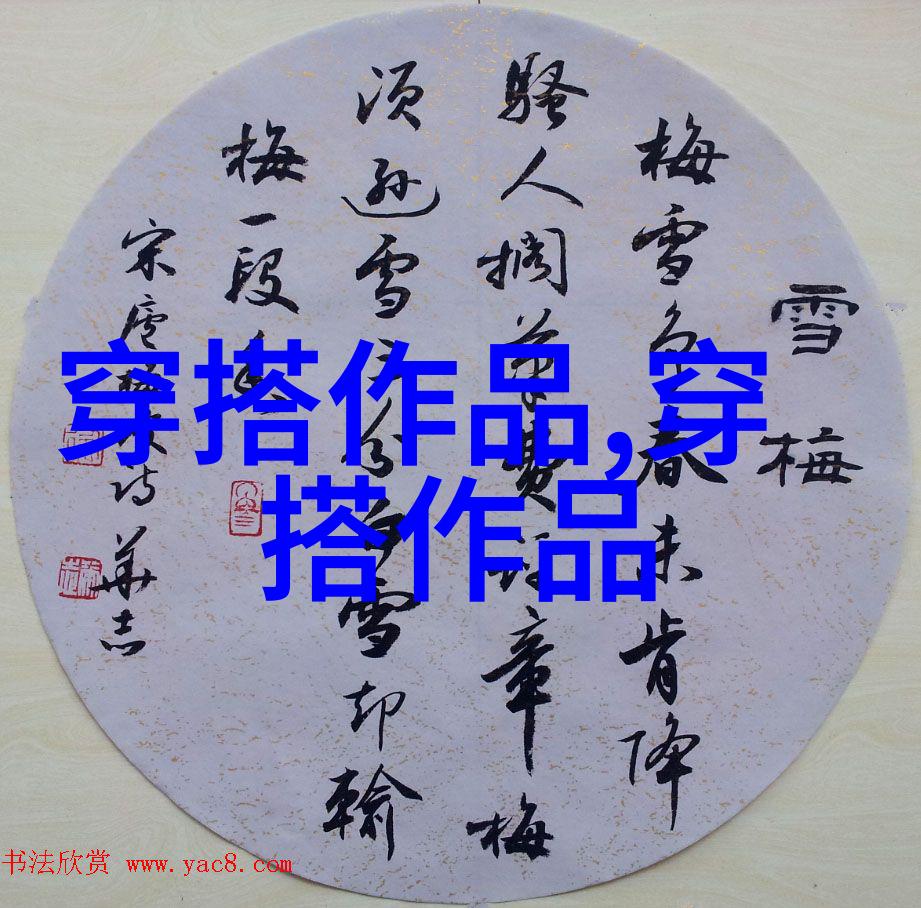 雪梅
梅雪争春未肯降
骚人搁笔费评章梅
须逊雪三分白雪却输
梅一段香
宋卢梅坡诗 華志
穿搭作品,穿
搭作品
书法欣赏 www.yac8.com